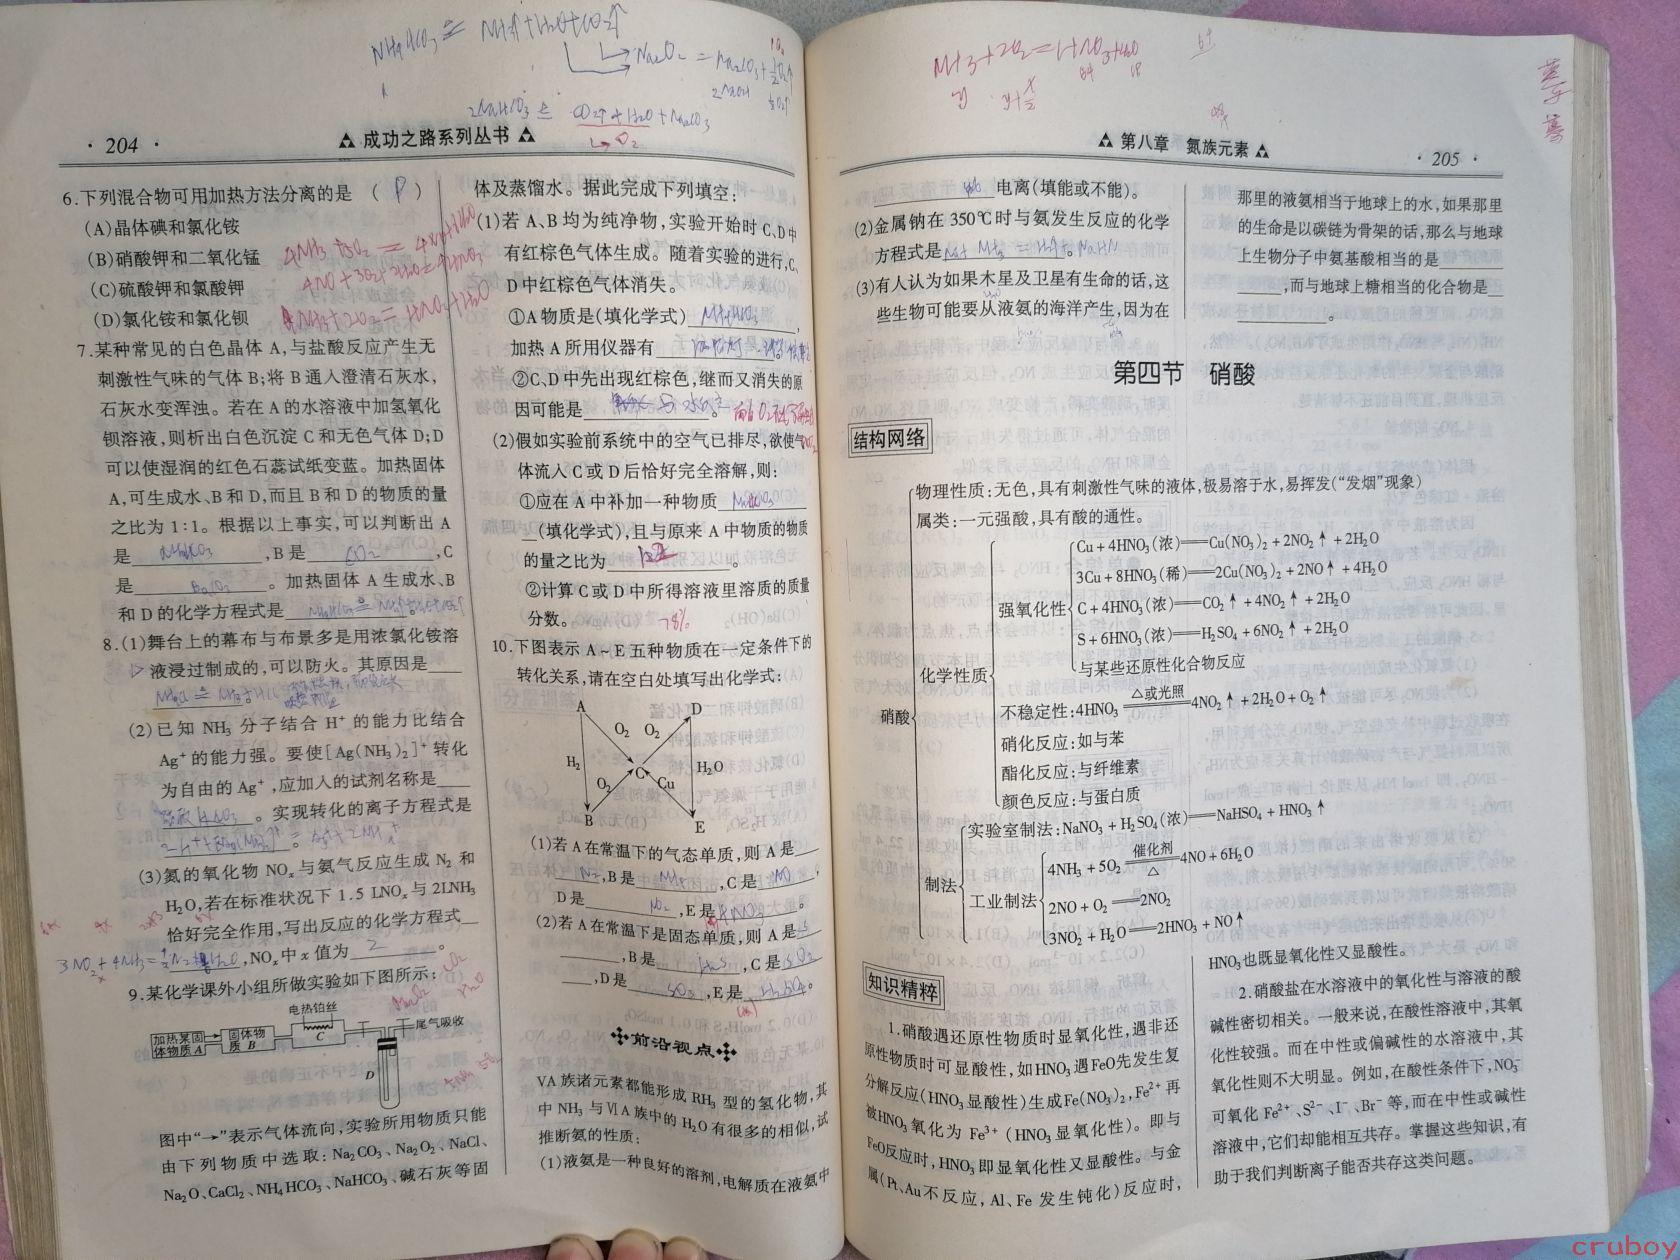 · 204 ·
成功之路系列丛书
6.下列混合物可用加热方法分离的是 ( )
(A)晶体碘和氯化铵
(B)硝酸钾和二氧化锰
(C)硫酸钾和氯酸钾
(D)氯化铵和氯化钡
7.某种常见的白色晶体 A,与盐酸反应产生无
刺激性气味的气体 B;将 B 通入澄清石灰水,
石灰水变浑浊。若在 A 的水溶液中加氢氧化
钡溶液,则析出白色沉淀 C 和无色气体 D;D
可以使湿润的红色石蕊试纸变蓝。加热固体
A,可生成水、B 和 D,而且 B 和 D 的物质的量
之比为 1:1。根据以上事实,可以判断出 A
是 NH₄HCO₃ ,B 是 CO₂ ,C
是 BaCO₃ 。加热固体 A 生成水、B
和 D 的化学方程式是
8.(1)舞台上的幕布与布景多是用浓氯化铵溶
液浸过制成的,可以防火。其原因是
(2)已知 NH₃ 分子结合 H⁺ 的能力比结合
Ag⁺ 的能力强。要使[Ag(NH₃)₂]⁺ 转化
为自由的 Ag⁺ ,应加入的试剂名称是
。实现转化的离子方程式是
(3)氮的氧化物 NOₓ 与氨气反应生成 N₂ 和
H₂O,若在标准状况下 1.5 LNOₓ 与 2LNH₃
恰好完全作用,写出反应的化学方程式
,NOₓ 中 x 值为 2 。
9.某化学课外小组所做实验如下图所示:
电热铂丝
加热某固体物质 A
固体物质 B
C
尾气吸收
D
图中“→”表示气体流向,实验所用物质只能
由下列物质中选取:Na₂CO₃、Na₂O₂、NaCl、
Na₂O、CaCl₂、NH₄HCO₃、NaHCO₃、碱石灰等固
体及蒸馏水。据此完成下列填空:
(1)若 A、B 均为纯净物,实验开始时 C、D 中
有红棕色气体生成。随着实验的进行,C、
D 中红棕色气体消失。
①A 物质是(填化学式) NH₄HCO₃ ,
加热 A 所用仪器有
②C、D 中先出现红棕色,继而又消失的原
因可能是
(2)假如实验前系统中的空气已排尽,欲使气
体流入 C 或 D 后恰好完全溶解,则:
①应在 A 中补加一种物质 NaHCO₃
(填化学式),且与原来 A 中物质的物质
的量之比为 。
②计算 C 或 D 中所得溶液里溶质的质量
分数。 78%
10.下图表示 A~E 五种物质在一定条件下的
转化关系,请在空白处填写出化学式:
A D
O₂ O₂
H₂ C H₂O
O₂ Cu
B E
(1)若 A 在常温下的气态单质,则 A 是
N₂ ,B 是 NH₃ ,C 是 NO ,
D 是 NO₂ ,E 是 HNO₃ 。
(2)若 A 在常温下是固态单质,则 A 是 S
,B 是 H₂S ,C 是 SO₂
,D 是 SO₃ ,E 是 H₂SO₄ 。
前沿视点
VA 族诸元素都能形成 RH₃ 型的氢化物,其
中 NH₃ 与 ⅥA 族中的 H₂O 有很多的相似,试
推断氨的性质:
(1)液氨是一种良好的溶剂,电解质在液氨中
第八章 氮族元素
· 205 ·
能 电离(填能或不能)。
(2)金属钠在 350℃时与氨发生反应的化学
方程式是
(3)有人认为如果木星及卫星有生命的话,这
些生物可能要从液氨的海洋产生,因为在
那里的液氨相当于地球上的水,如果那里
的生命是以碳链为骨架的话,那么与地球
上生物分子中氨基酸相当的是
,而与地球上糖相当的化合物是
。
第四节 硝酸
结构网络
硝酸
物理性质:无色,具有刺激性气味的液体,极易溶于水,易挥发(“发烟”现象)
属类:一元强酸,具有酸的通性。
化学性质
强氧化性
Cu + 4HNO₃(浓)══Cu(NO₃)₂ + 2NO₂↑ + 2H₂O
3Cu + 8HNO₃(稀)══2Cu(NO₃)₂ + 2NO↑ + 4H₂O
C + 4HNO₃(浓)══CO₂↑ + 4NO₂↑ + 2H₂O
S + 6HNO₃(浓)══H₂SO₄ + 6NO₂↑ + 2H₂O
与某些还原性化合物反应
不稳定性:4HNO₃ ══△或光照══ 4NO₂↑ + 2H₂O + O₂↑
硝化反应:如与苯
酯化反应:与纤维素
颜色反应:与蛋白质
制法
实验室制法:NaNO₃ + H₂SO₄(浓)══NaHSO₄ + HNO₃↑
工业制法
4NH₃ + 5O₂ ══催化剂 △══ 4NO + 6H₂O
2NO + O₂══2NO₂
3NO₂ + H₂O══2HNO₃ + NO↑
知识精粹
1.硝酸遇还原性物质时显氧化性,遇非还
原性物质时可显酸性,如HNO₃ 遇FeO先发生复
分解反应(HNO₃ 显酸性)生成Fe(NO₃)₂,Fe²⁺ 再
被HNO₃ 氧化为 Fe³⁺ (HNO₃ 显氧化性)。即与
FeO反应时,HNO₃ 即显氧化性又显酸性。与金
属(Pt、Au不反应,Al、Fe 发生钝化)反应时,
HNO₃也既显氧化性又显酸性。
2.硝酸盐在水溶液中的氧化性与溶液的酸
碱性密切相关。一般来说,在酸性溶液中,其氧
化性较强。而在中性或偏碱性的水溶液中,其
氧化性则不大明显。例如,在酸性条件下,NO₃⁻
可氧化 Fe²⁺、S²⁻、I⁻、Br⁻ 等,而在中性或碱性
溶液中,它们却能相互共存。掌握这些知识,有
助于我们判断离子能否共存这类问题。
cruboy